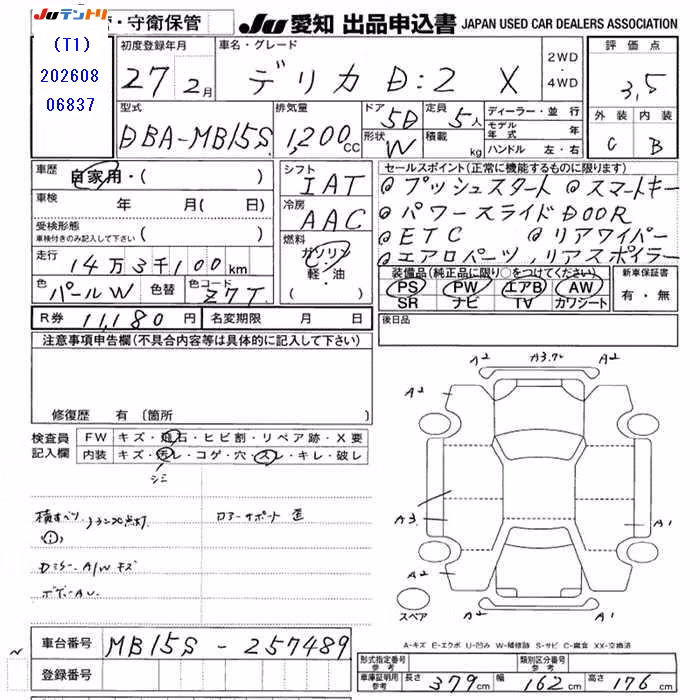 JUテントリ ・守衛保管 JU 愛知 出品申込書 JAPAN USED CAR DEALERS ASSOCIATION
(T1)
202608
06837
初度登録年月 車名・グレード 評価点
27 2月 デリカ D:2 X 2WD・4WD 3,5
型式 排気量 ドア 5D 定員 5人 ディーラー・並行 外装 内装
DBA-MB15S 1,200cc 形状 W 積載 kg モデル年式 年 C B
ハンドル 左・右
車歴 自家用・( ) シフト IAT セールスポイント(正常に機能するものに限ります)
車検 年 月( 日) 冷房 AAC @プッシュスタート @スマートキー
受検形態 @パワースライドDOOR
車検付きのみ記入して下さい ( ) 燃料 @ETC @リアワイパー
走行 14万3千100km ガソリン・軽・油 ( ) @エアロパーツ,リアスポイラー
色 パールW 色替 色コード Z7T 装備品(純正品に限り○をつけてください) 新車保証書
PS PW エアB AW 有・無
SR ナビ TV カワシート
R券 11,180円 名変期限 月 日 後日品
注意事項申告欄(不具合内容等は具体的に記入して下さい)
修復歴 有 (箇所 )
検査員記入欄 FW キズ・飛石・ヒビ割・リペア跡・X要
内装 キズ・汚レ・コゲ・穴・スレ・キレ・破レ
シミ
A2 A3.72 A2
A2 A2
A3 A1
A2 A2
A2 A1
スペア
A-キズ E-エクボ U-凹み W-補修跡 S-サビ C-腐食 XX-交換済
車台番号 MB15S-257489
登録番号
形式指定番号 参考 類別区分番号 参考
車庫証明用 参考 長さ 379cm 幅 162cm 高さ 176cm